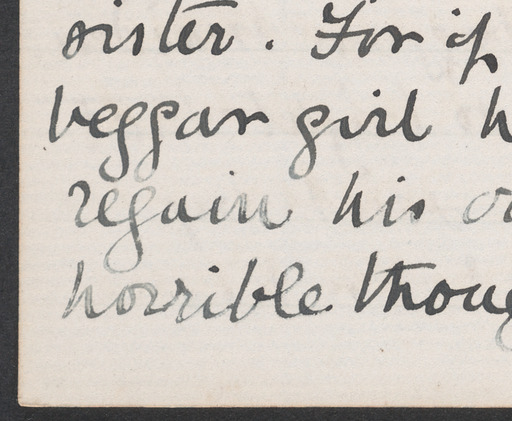 sister. For if
beggar girl h
regain his o
horrible thoug